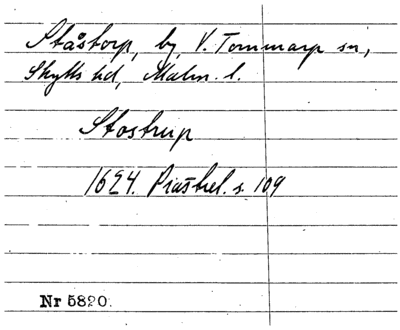 Ståstorp, by, V. Tommarp sn,
Skytts hd, Malm. l.
Stostrup
1624. Priastrel. s. 109
Nr 5820.